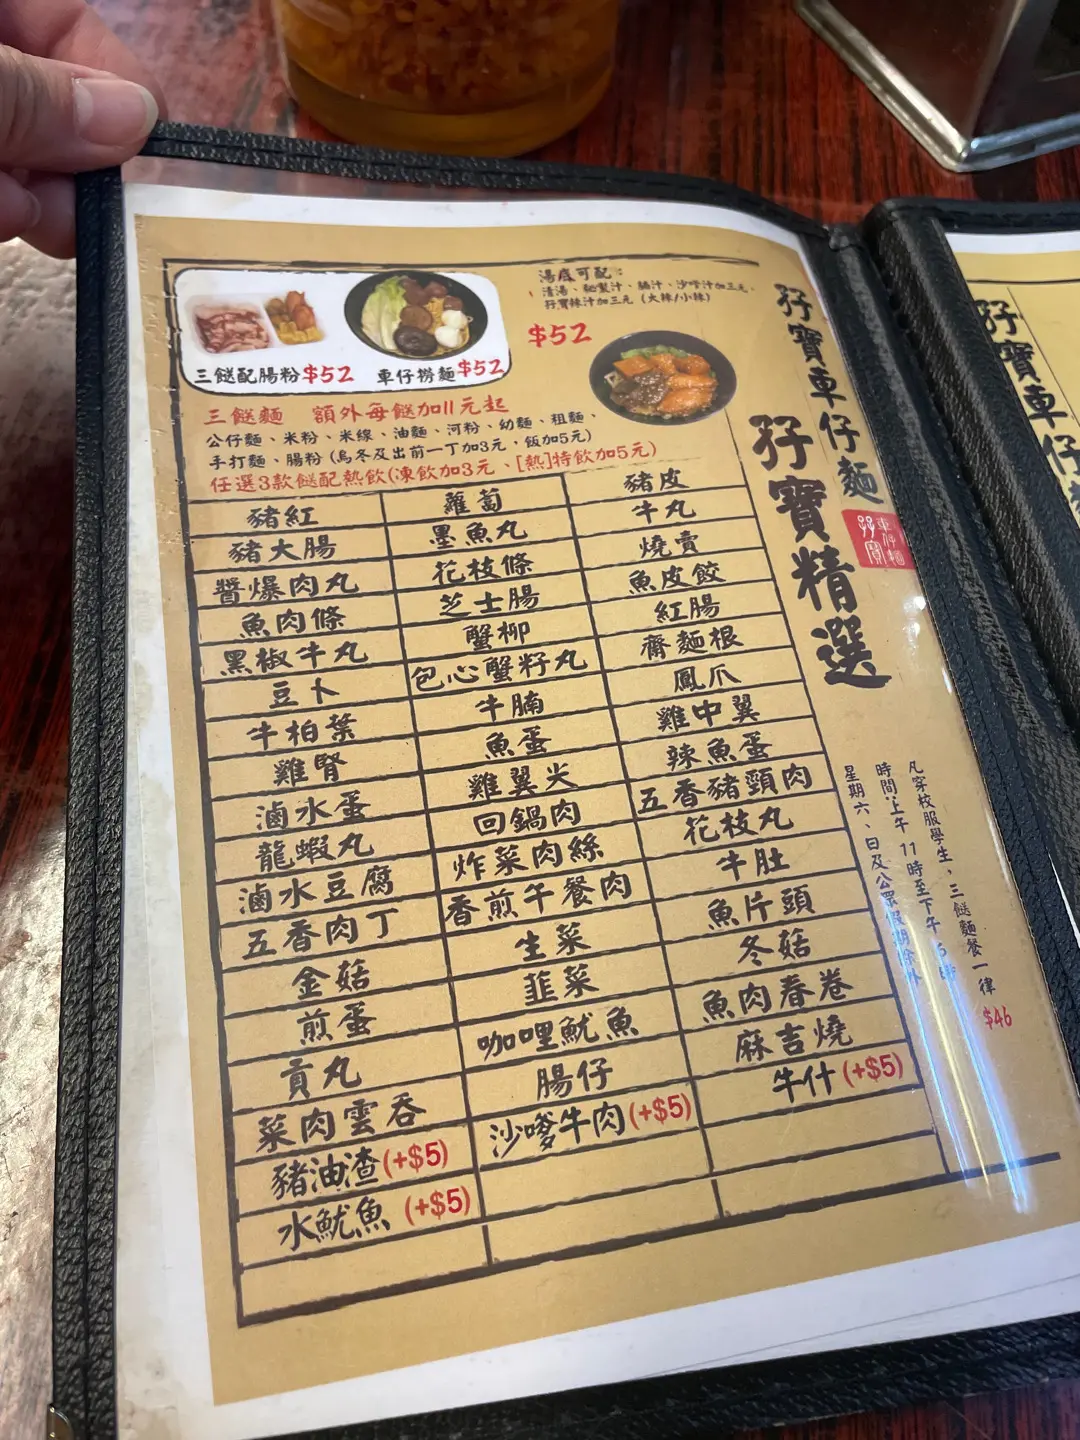 湯底可配：
清湯、秘製汁、腩汁、沙嗲汁加三元、
孖寶辣汁加三元（大辣/小辣）
$52
三餸配腸粉$52
車仔撈麵$52
三餸麵　額外每餸加11元起
公仔麵、米粉、米線、油麵、河粉、幼麵、粗麵、
手打麵、腸粉（烏冬及出前一丁加3元，飯加5元）
任選3款餸配熱飲(凍飲加3元、[熱]特飲加5元)
豬紅
蘿蔔
豬皮
豬大腸
墨魚丸
牛丸
醬爆肉丸
花枝條
燒賣
魚肉條
芝士腸
魚皮餃
黑椒牛丸
蟹柳
紅腸
豆卜
包心蟹籽丸
齋麵根
牛柏葉
牛腩
鳳爪
雞腎
魚蛋
雞中翼
滷水蛋
雞翼尖
辣魚蛋
龍蝦丸
回鍋肉
五香豬頸肉
滷水豆腐
炸菜肉絲
花枝丸
五香肉丁
香煎午餐肉
牛肚
金菇
生菜
魚片頭
煎蛋
韮菜
冬菇
貢丸
咖哩魷魚
魚肉春卷
菜肉雲吞
腸仔
麻吉燒
豬油渣(+$5)
沙嗲牛肉(+$5)
牛什(+$5)
水魷魚(+$5)
孖寶車仔麵
孖寶精選
車仔麵
孖寶
凡穿校服學生、三餸麵餐一律$46
時間:上午11時至下午5時
星期六、日及公眾假期除外
孖寶車仔